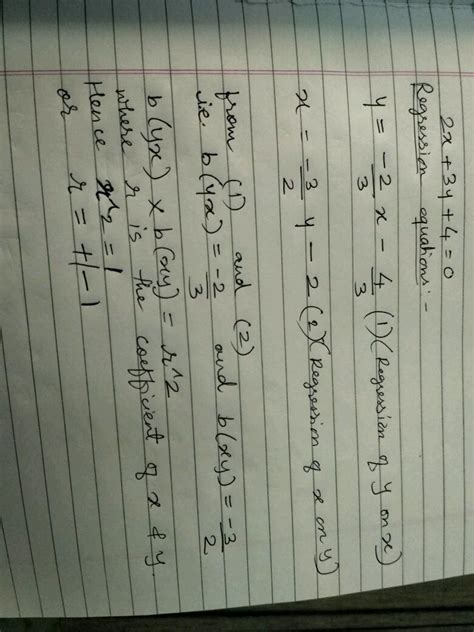 2x + 3y + 4 = 0
Regression equations:-
y = -2/3 x - 4/3 (1) (Regression of y on x)
x = -3/2 y - 2 (2) (Regression of x on y)
from (1) and (2)
i.e. b(yx) = -2/3 and b(xy) = -3/2
b(yx) x b(xy) = r^2
where r is the coefficient of x & y.
Hence r^2 = 1
or r = +/-1